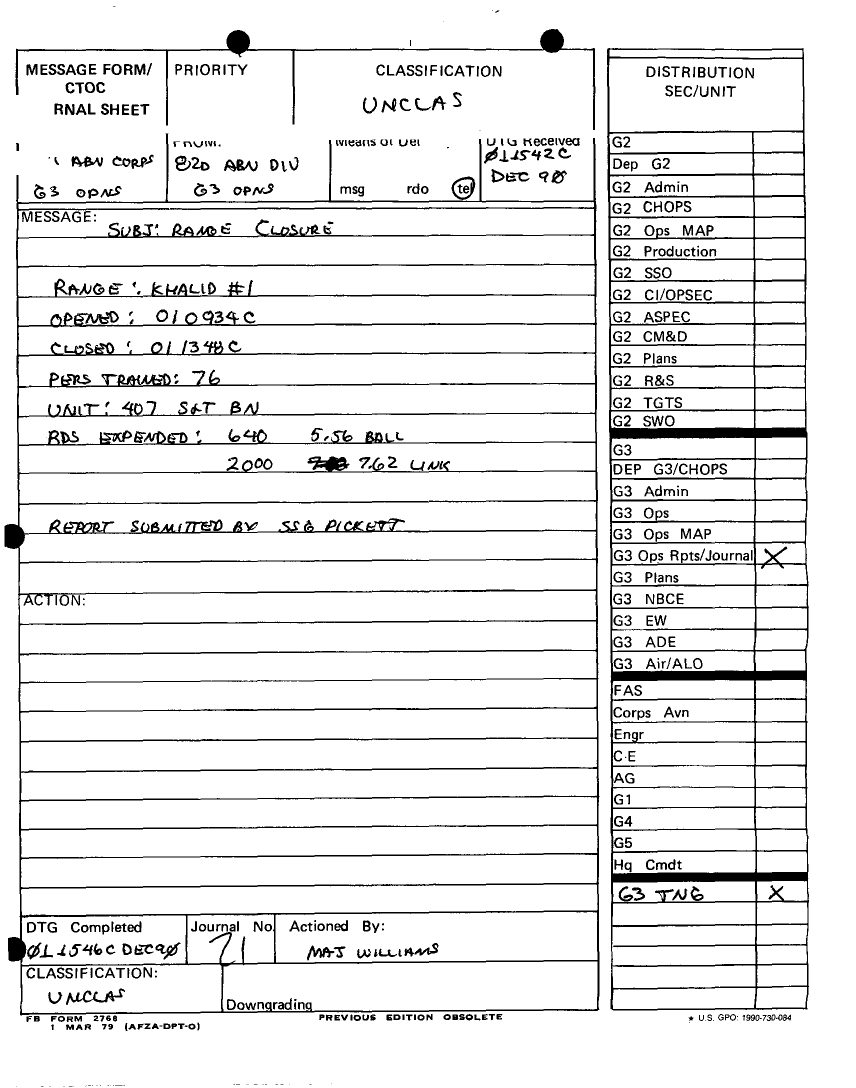 MESSAGE FORM/
CTOC
RNAL SHEET
PRIORITY
CLASSIFICATION
UNCLAS
ABN CORPS
G3 OPNS
FROM:
82D ABN DIV
G3 OPNS
Means of Del
msg rdo tel
DTG Received
011542C
DEC 90
MESSAGE:
SUBJ: RANGE CLOSURE
RANGE: KHALID #1
OPENED: 010934C
CLOSED: 011348C
PERS TRAINED: 76
UNIT: 407 S&T BN
RDS EXPENDED: 640 5.56 BALL
2000 7.62 LINK
REPORT SUBMITTED BY SSG PICKETT
ACTION:
DTG Completed
011546C DEC90
Journal No.
71
Actioned By:
MAJ WILLIAMS
CLASSIFICATION:
UNCLAS
Downgrading
FB FORM 2768
1 MAR 79 (AFZA-DPT-O)
PREVIOUS EDITION OBSOLETE
DISTRIBUTION
SEC/UNIT
G2
Dep G2
G2 Admin
G2 CHOPS
G2 Ops MAP
G2 Production
G2 SSO
G2 CI/OPSEC
G2 ASPEC
G2 CM&D
G2 Plans
G2 R&S
G2 TGTS
G2 SWO
G3
DEP G3/CHOPS
G3 Admin
G3 Ops
G3 Ops MAP
G3 Ops Rpts/Journal X
G3 Plans
G3 NBCE
G3 EW
G3 ADE
G3 Air/ALO
FAS
Corps Avn
Engr
C-E
AG
G1
G4
G5
Hq Cmdt
G3 TNG X
★ U.S. GPO: 1990-730-084